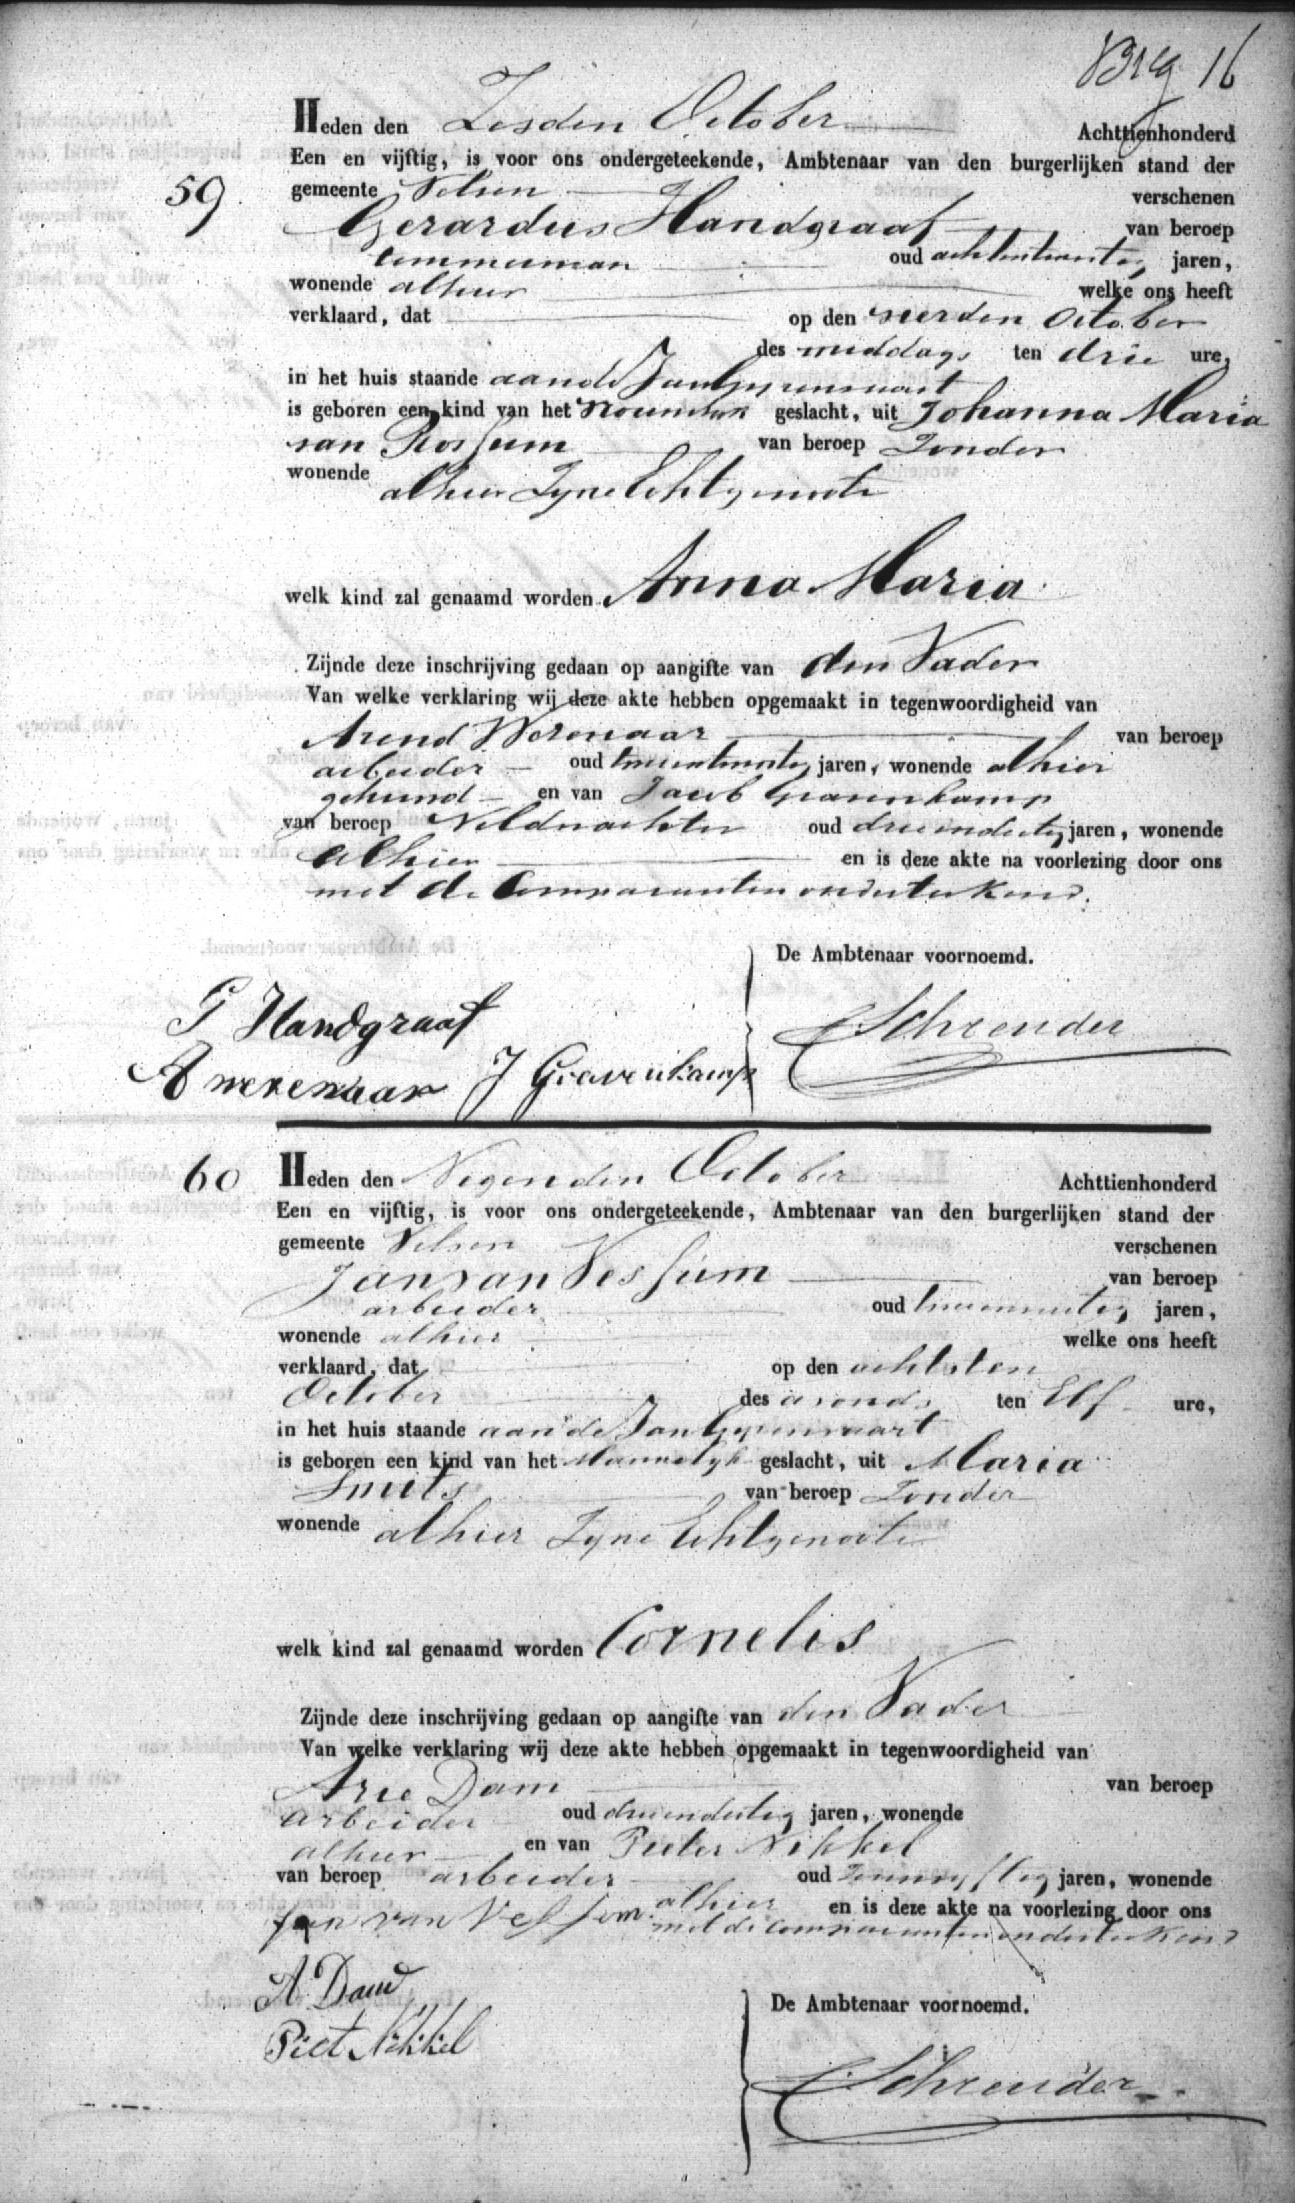 16
Heden den Zesden October Achttienhonderd
Een en vijftig, is voor ons ondergeteekende, Ambtenaar van den burgerlijken stand der
59
gemeente Velsen verschenen
Gerardus Handgraaf van beroep
timmerman oud achtentwintig jaren,
wonende alhier welke ons heeft
verklaard, dat op den vierden October
des middags ten drie ure,
in het huis staande aan de Jan Gijzenvaart
is geboren een kind van het Vrouwelijk geslacht, uit Johanna Maria
van Rossum van beroep Zonder
wonende alhier Zyne Echtgenoote
welk kind zal genaamd worden Anna Maria
Zijnde deze inschrijving gedaan op aangifte van den Vader
Van welke verklaring wij deze akte hebben opgemaakt in tegenwoordigheid van
Arend Werenaar van beroep
arbeider oud jaren, wonende alhier
en van Jacob Gravenkamp
van beroep Veldwachter oud drieendertig jaren, wonende
alhier en is deze akte na voorlezing door ons
met de Comparanten onderteekend.
De Ambtenaar voornoemd.
G Handgraaf
Schreuder
A werenaar J Gravenkamp
60
Heden den Negenden October Achttienhonderd
Een en vijftig, is voor ons ondergeteekende, Ambtenaar van den burgerlijken stand der
gemeente Velsen verschenen
Jan van Vessum van beroep
arbeider oud jaren,
wonende alhier welke ons heeft
verklaard, dat op den achtsten
October des avonds ten Elf ure,
in het huis staande aan de Jan Gijzenvaart
is geboren een kind van het Mannelyk geslacht, uit Maria
Smits van beroep Zonder
wonende alhier Zyne Echtgenoote
welk kind zal genaamd worden Cornelis
Zijnde deze inschrijving gedaan op aangifte van den Vader
Van welke verklaring wij deze akte hebben opgemaakt in tegenwoordigheid van
Arie Dam van beroep
arbeider oud drieendertig jaren, wonende
alhier en van Pieter Nikkel
van beroep arbeider oud jaren, wonende
alhier en is deze akte na voorlezing door ons
Jan van Vessum met de comparanten onderteekend
A Dam
De Ambtenaar voornoemd.
Piet Nikkel
Schreuder